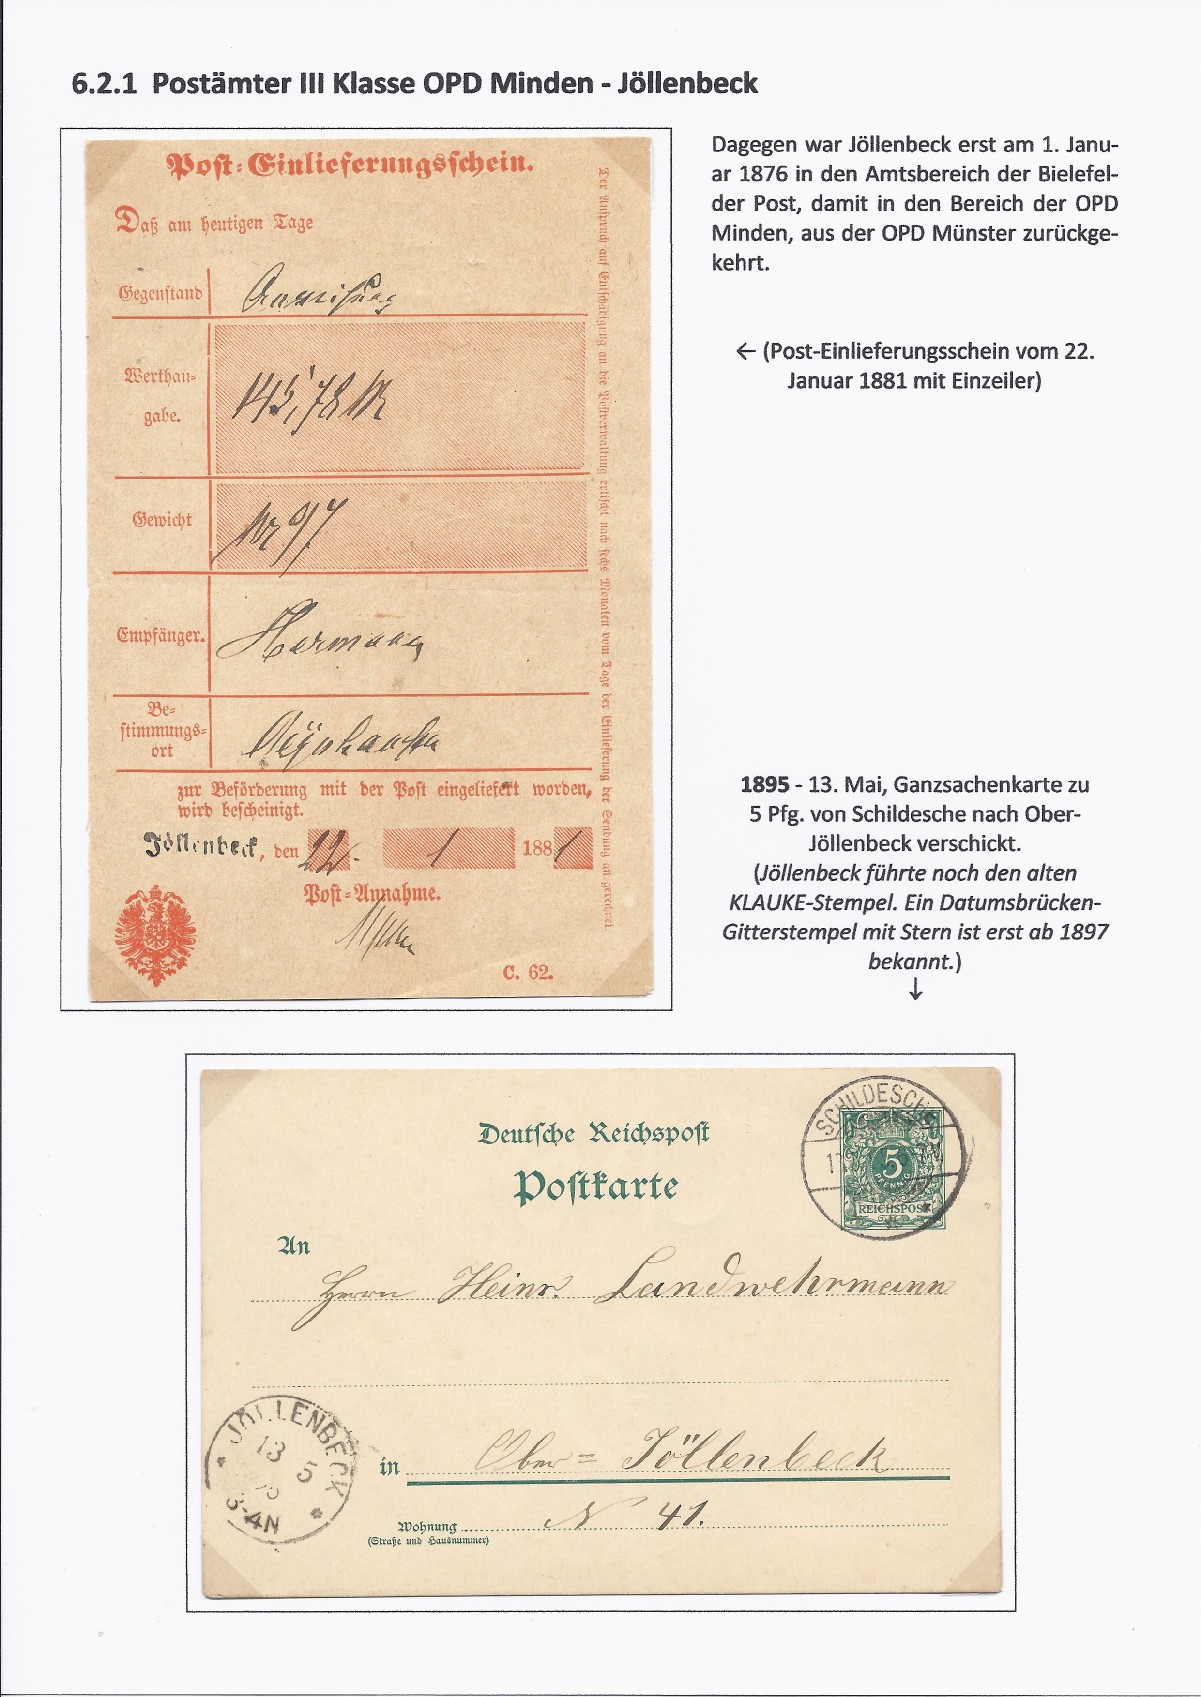 6.2.1 Postämter III Klasse OPD Minden - Jöllenbeck
Post-Einlieferungsschein.
Daß am heutigen Tage
Gegenstand Anweisung
Werthan-
gabe.
145,78 M
Gewicht No 97
Empfänger. Hermann
Be-
stimmungs-
ort
Oeynhausen
zur Beförderung mit der Post eingeliefert worden,
wird bescheinigt.
Jöllenbeck, den 22. 1 1881
Post-Annahme.
C. 62.
Der Anspruch auf Entschädigung an die Postverwaltung erlischt nach sechs Monaten vom Tage der Einlieferung der Sendung an gerechnet
Dagegen war Jöllenbeck erst am 1. Janu-
ar 1876 in den Amtsbereich der Bielefel-
der Post, damit in den Bereich der OPD
Minden, aus der OPD Münster zurückge-
kehrt.
← (Post-Einlieferungsschein vom 22.
Januar 1881 mit Einzeiler)
1895 - 13. Mai, Ganzsachenkarte zu
5 Pfg. von Schildesche nach Ober-
Jöllenbeck verschickt.
(Jöllenbeck führte noch den alten
KLAUKE-Stempel. Ein Datumsbrücken-
Gitterstempel mit Stern ist erst ab 1897
bekannt.)
↓
Deutsche Reichspost
Postkarte
SCHILDESCHE
5
PFENNIG
REICHSPOST
An
Herrn Heinr. Landwehrmann
in Ober=Jöllenbeck
Wohnung N 41.
(Straße und Hausnummer)
* JÖLLENBECK *
13
5
3-4N